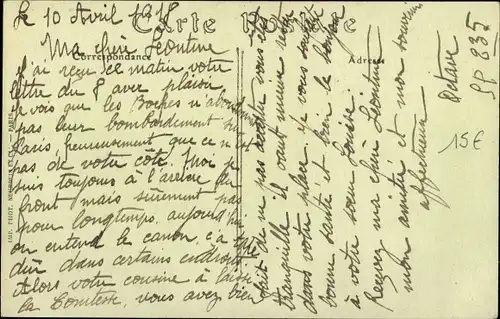 Le 10 Avril 1918
Carte Postale
Ma chère Léontine
Correspondance
Adresse
j'ai reçu ce matin votre
lettre du 8 avec plaisir
je vois que les Boches n'abandonnent
pas leur bombardement sur
Paris, heureusement que ce n'est
pas de votre côté. Moi je
suis toujours à l'arrière du
front mais sûrement pas
pour longtemps, aujourd'hui
on entend le canon, ça
dur dans certains endroits
Alors votre cousine a laissé
la Comtesse, vous avez bien
fait de ne pas
tranquille il vaut mieux
dans votre place. je vous
bonne santé et bien le bonjour
à votre soeur Louise
Recevez ma chère Léontine
mon amitié et mon souvenir
affectueux
Octave
SP 835
15€
IMP. PHOT. NEURDEIN ET Cie. - PARIS